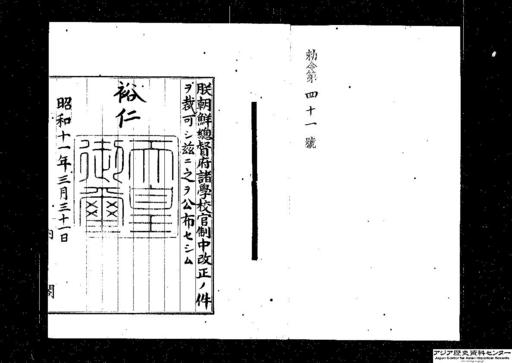 勅令第四十一號
朕朝鮮總督府諸學校官制中改正ノ件
ヲ裁可シ茲ニ之ヲ公布セシム
裕仁
天皇
御璽
昭和十一年三月三十一日
内閣
アジア歴史資料センター
Japan Center for Asian Historical Records